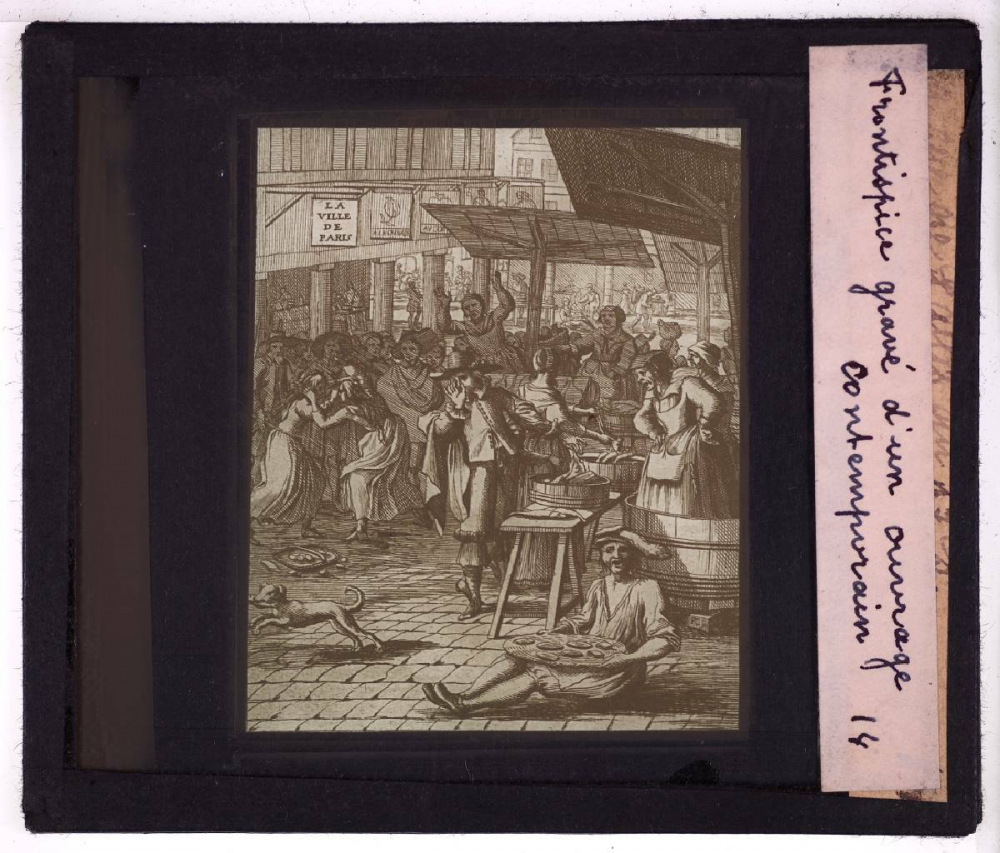 LA
VILLE
DE
PARIS
Frontispice gravé d'un ouvrage
contemporain 14